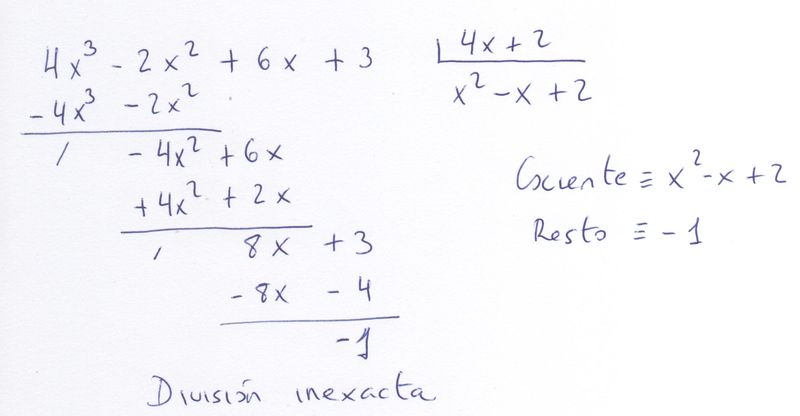 4x³ - 2x² + 6x + 3 | 4x + 2
- 4x³ - 2x² x² - x + 2
/ - 4x² + 6x
+ 4x² + 2x
/ 8x + 3
- 8x - 4
- 1
Cociente ≡ x² - x + 2
Resto ≡ - 1
División inexacta